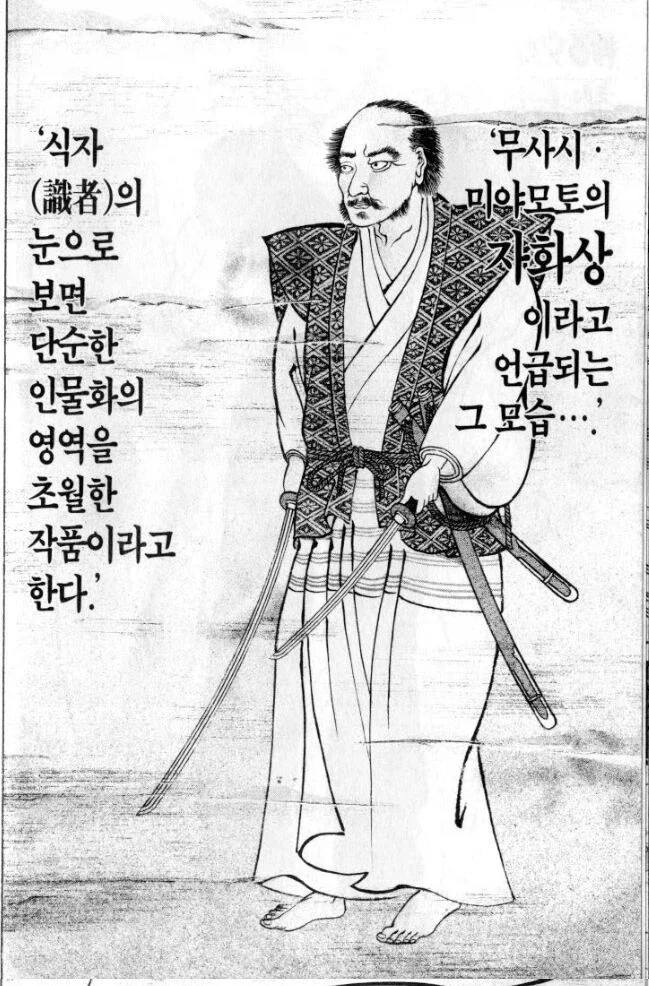 '무사시 ·
미야모토의
자화상
이라고
언급되는
그 모습….'
'식자
(識者)의
눈으로
보면
단순한
인물화의
영역을
초월한
작품이라고
한다.'